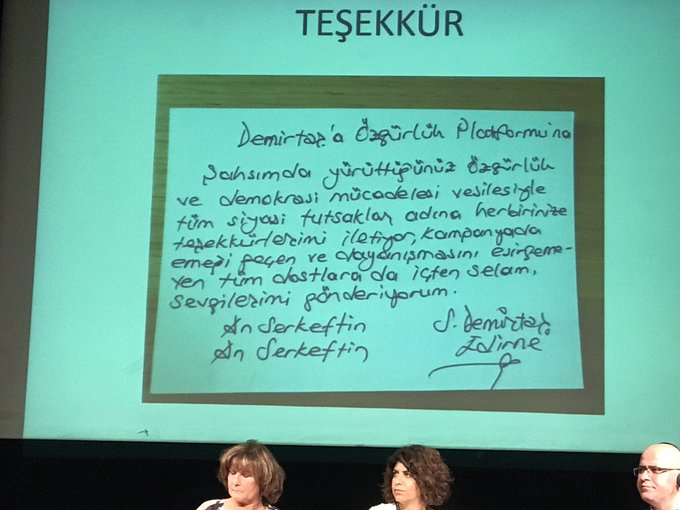 TEŞEKKÜR
Demirtaş'a Özgürlük Platformu'na
Şahsımda yürüttüğünüz özgürlük
ve demokrasi mücadelesi vesilesiyle
tüm siyasi tutsaklar adına herbirinize
teşekkürlerimi iletiyor, kampanyada
emeği geçen ve dayanışmasını esirgeme-
yen tüm dostlara da içten selam,
sevgilerimi gönderiyorum.
An Serkeftin S. Demirtaş
An Serkeftin Edirne